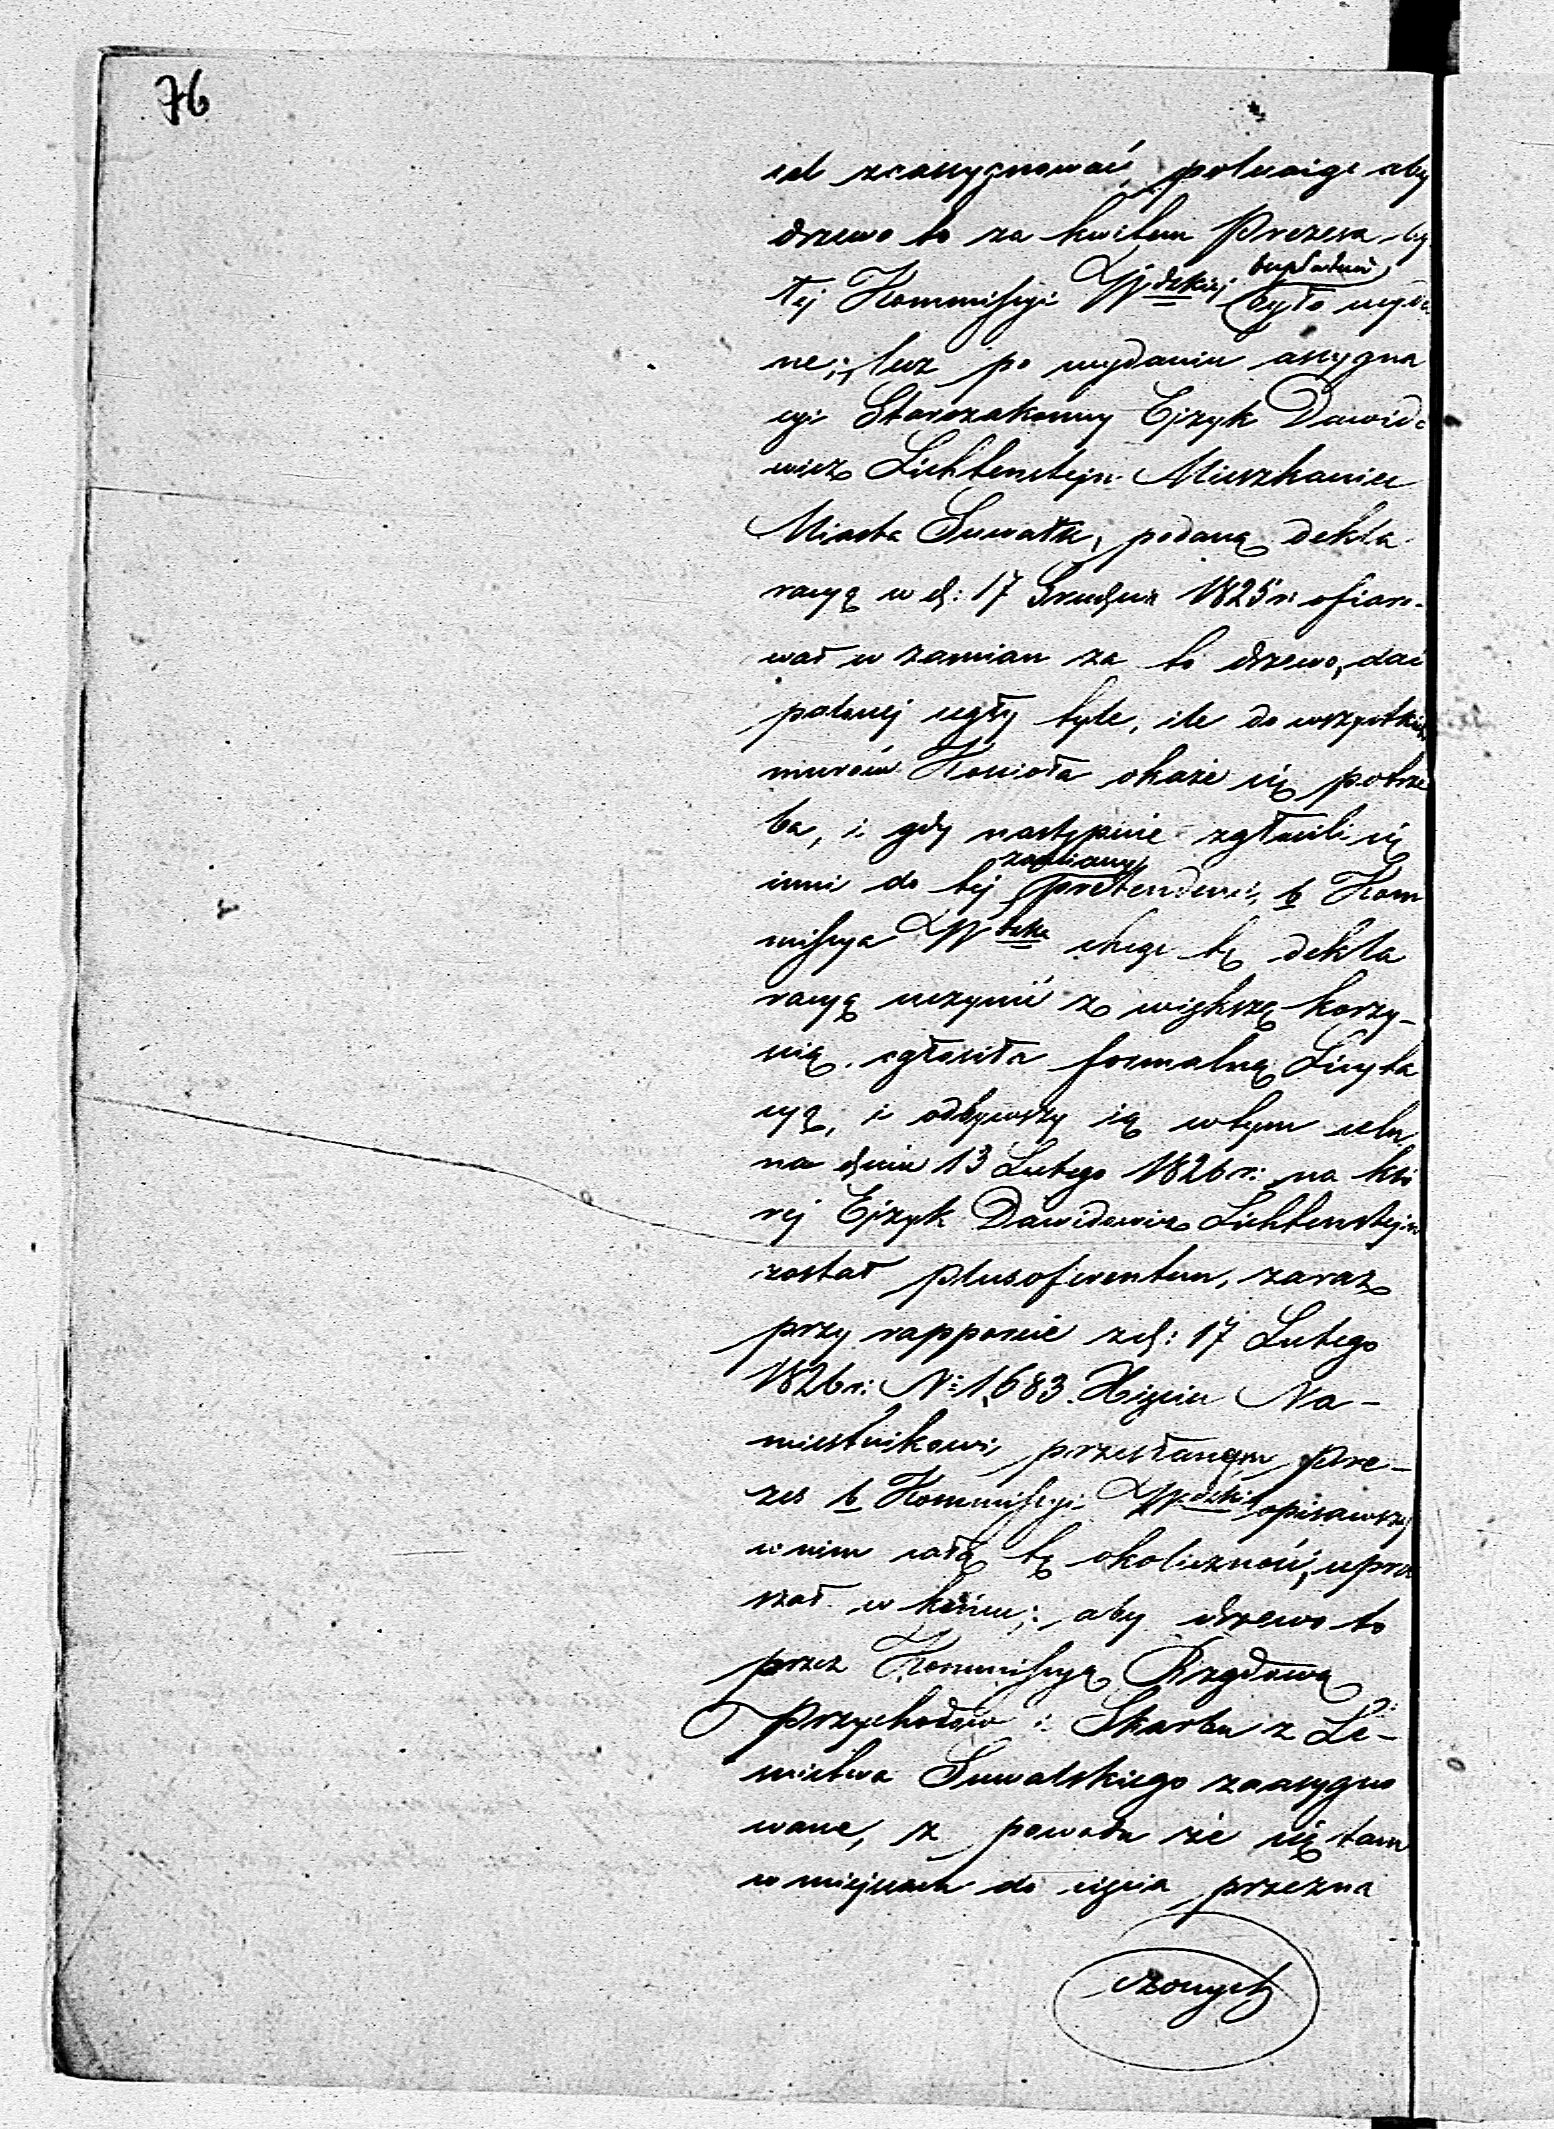 76
cel zaassygnować, polecaiąc aby
drzewo to za kwitem Prezesa by
tej Kommissyi Wdzkiej bezpłatnie było wyda
ne; lecz po wydaniu assygna
cyi Starozakonny Ejzyk Dawido
wicz Lichtenstejn Mieszkaniec
Miasta Suwałk, podaną dekla
racyą w d: 17 Grudnia 1825 r: ofiaro-
wał w zamian za to drzewo, dać
palonej cegły tyle, ile do wszystkich
murów Kościoła okaże się potrze
ba, i gdy następnie zgłosili się
inni do tej zamiany pretendenci, b Kom
missya Wdzka chcąc tę dekla
racyą uczynić z większą korzy-
ścią ogłosiła formalną Licyta
cyą, i odbywszy ią w tym celu
na dniu 13 Lutego 1826 r: na któ
rej Ejzyk Dawidowicz Lichtenstejn
został plusoferentem, zaraz
przy rapporcie z d: 17 Lutego
1826 r: N: 1,683. Xięciu Na-
miestnikowi przesłanym Pre-
zes b Kommissyi Wdzkiej opisawszy
w nim całą tę okoliczność, upra
szał w końcu; aby drzewo to
przez Kommissyą Rządową
Przychodów i Skarbu z Le-
śnictwa Suwalskiego zaassygno
wane, z powodu że się tam
w miejscach do cięcia przezna
czonych